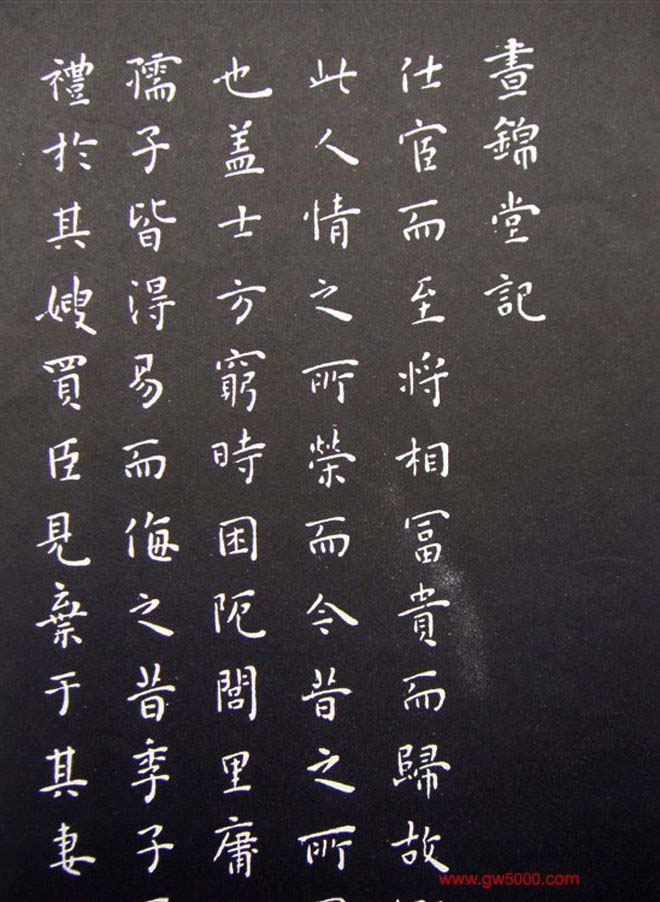 晝錦堂記
仕宦而至将相冨貴而歸故
此人情之所榮而今昔之所
也盖士方窮時困阨閭里庸
孺子皆得易而侮之昔季子
禮於其嫂買臣見棄于其妻
www.gw5000.com